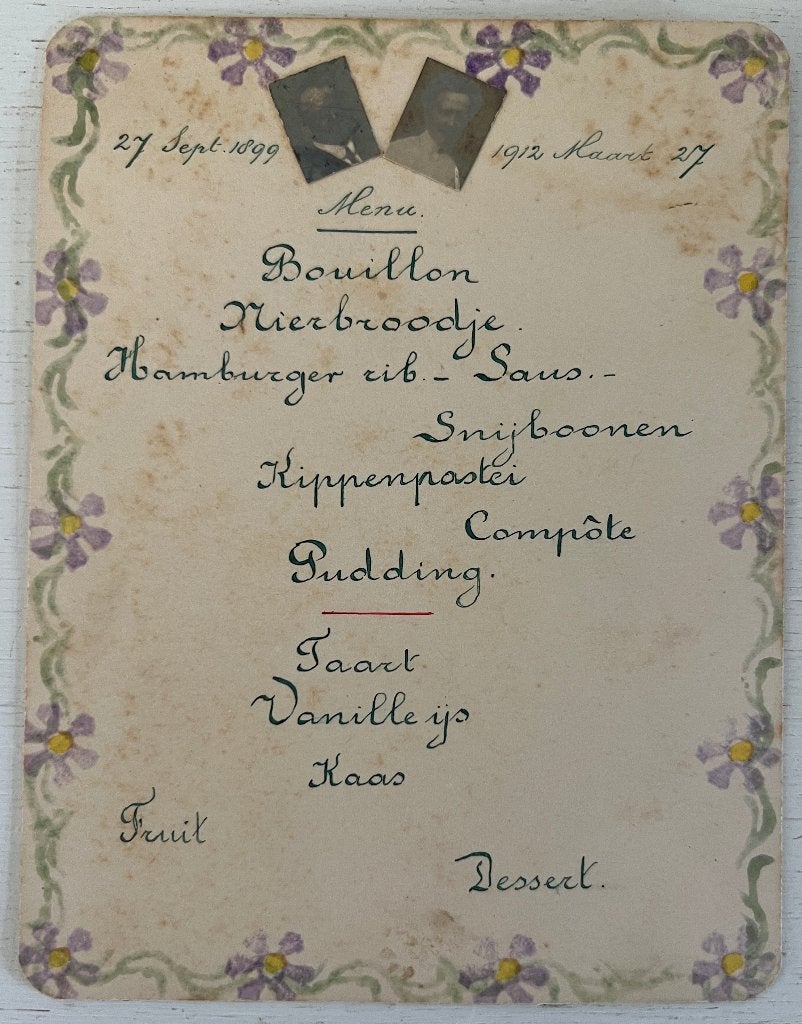 27 Sept. 1899 1912 Maart 27
Menu.
Bouillon
Nierbroodje.
Hamburger rib. - Saus. -
Snijboonen
Kippenpastei
Compôte
Pudding.
Taart
Vanille ijs
Kaas
Fruit
Dessert.